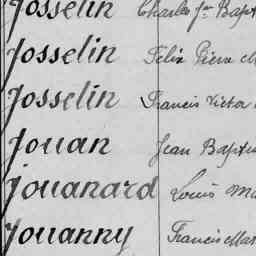 Josselin Charles Jn Bapt
Josselin Félix Pierre M
Josselin Francis Victor
Jouan Jean Baptis
Jouanard Louis Ma
Jouanny Francis Mar